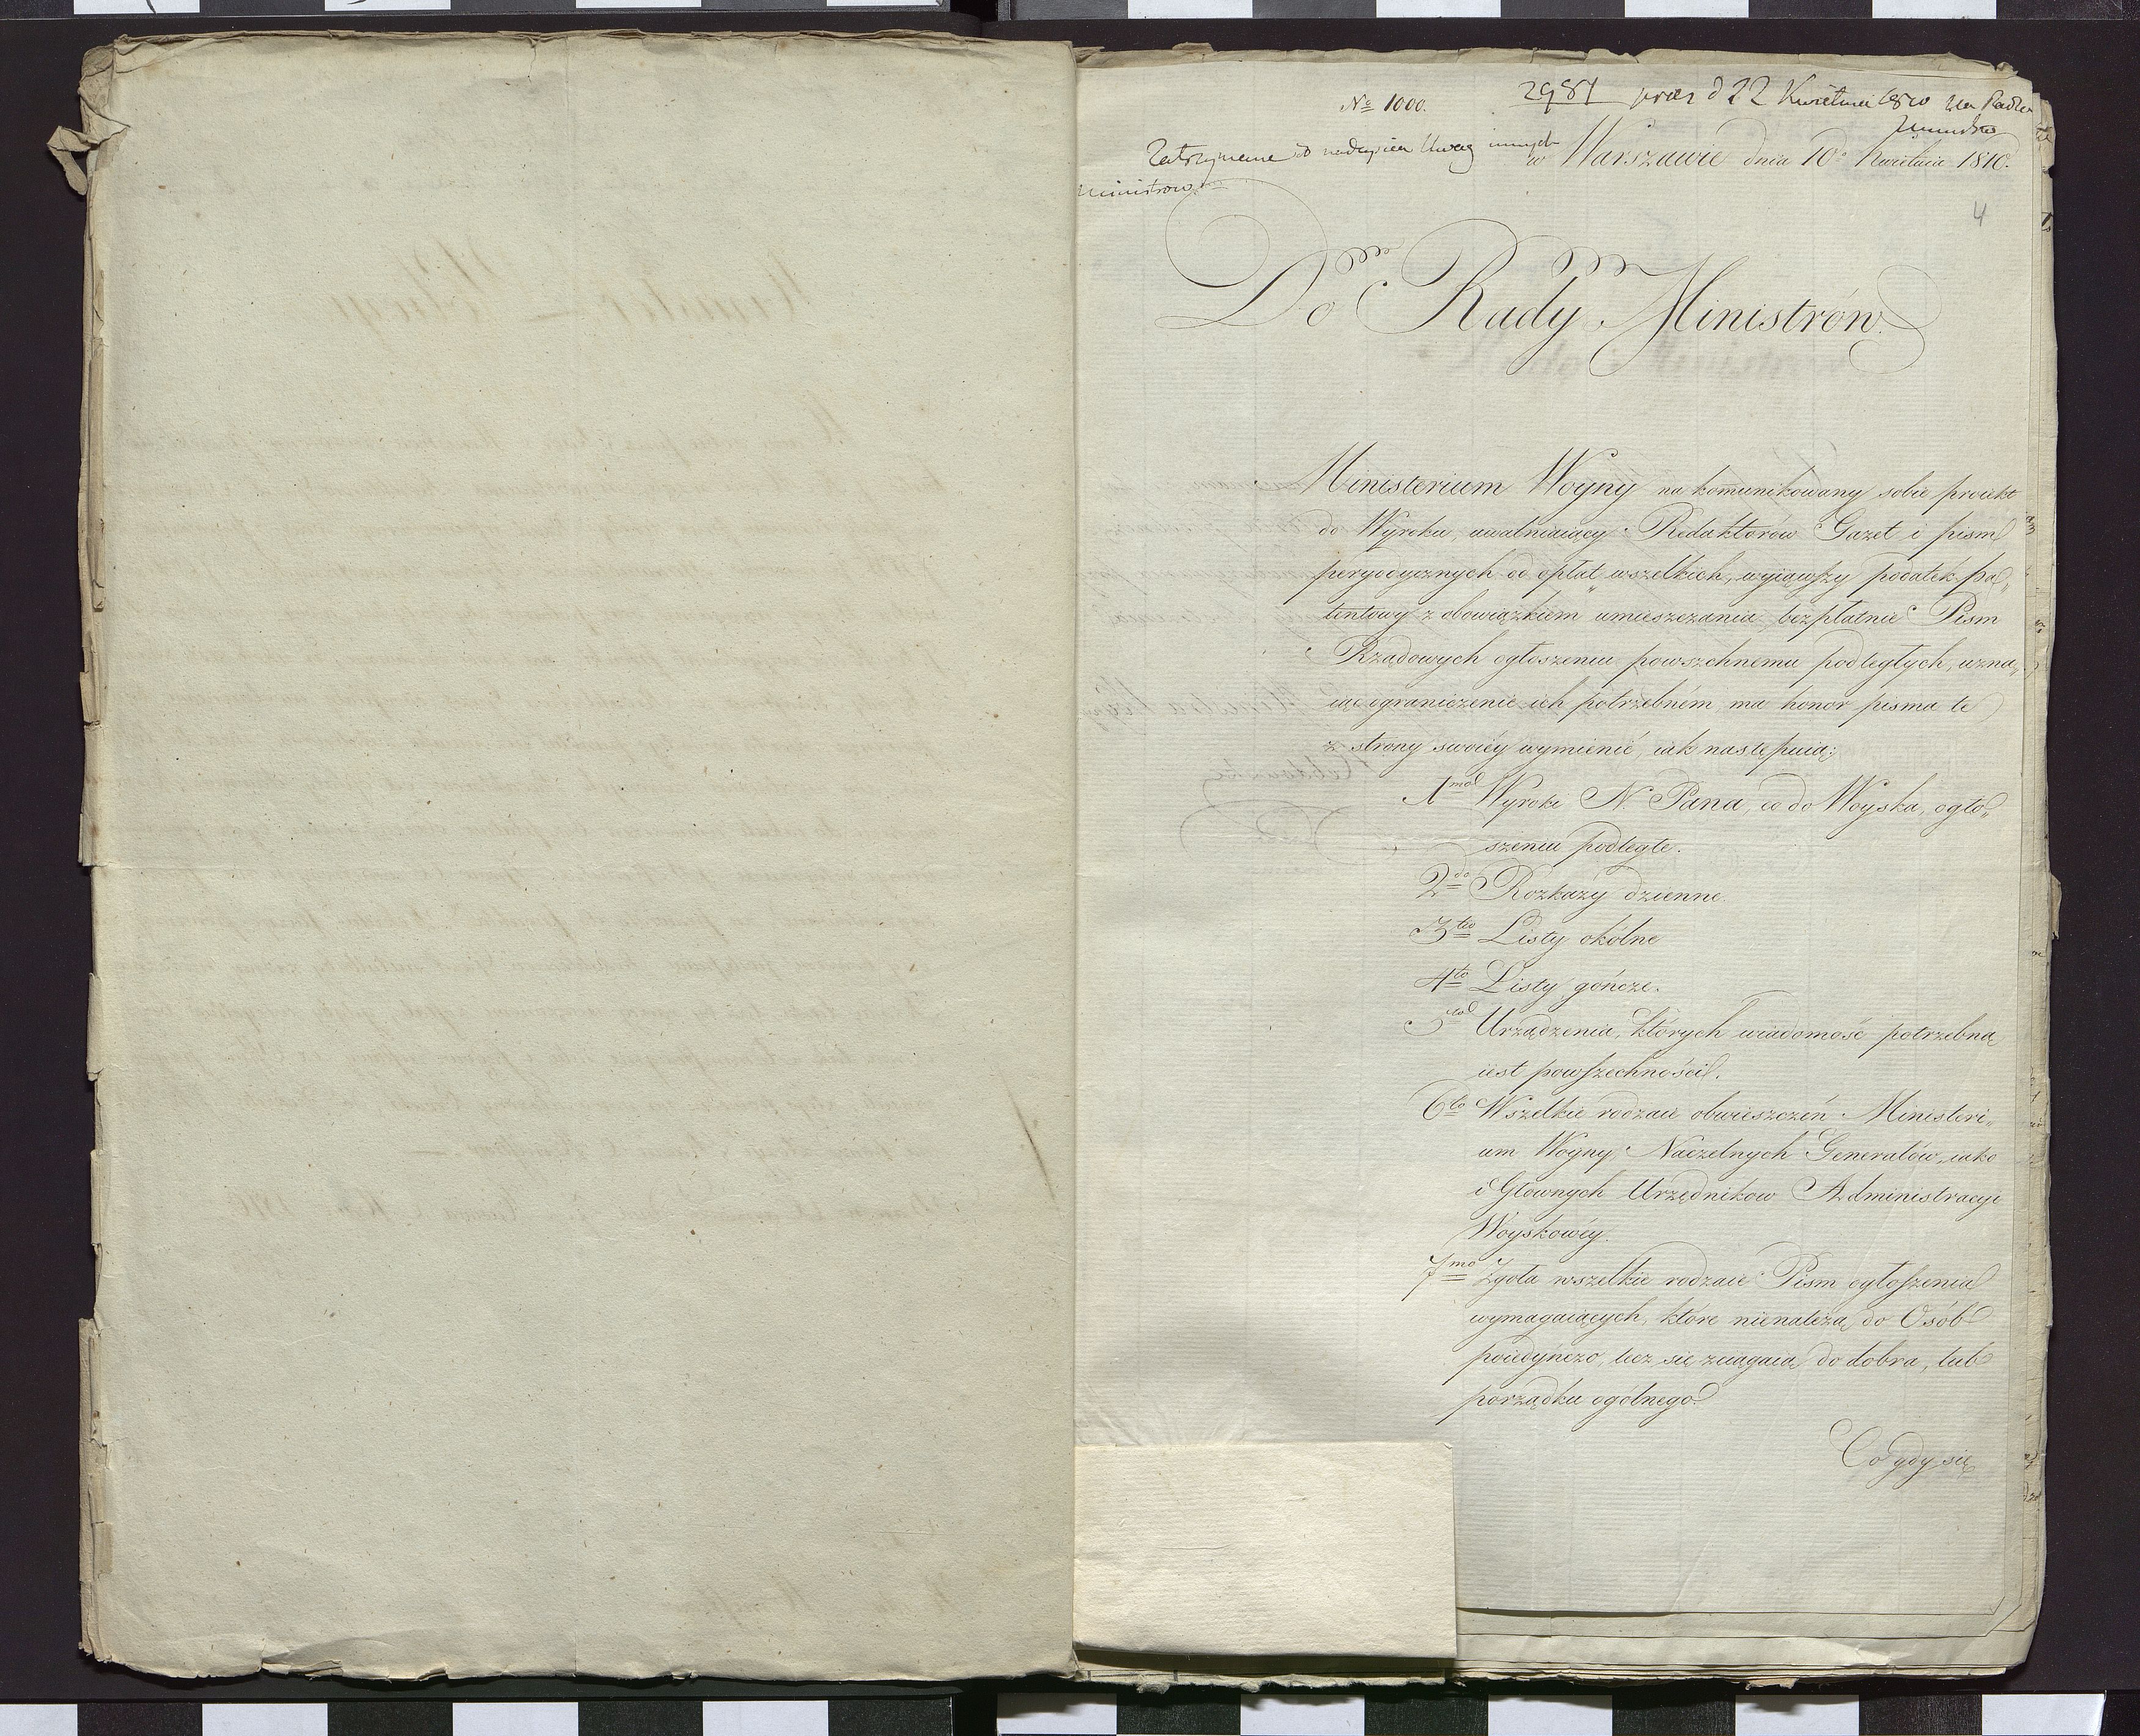 2981 prez d 22 Kwietnia 1810 na Radzie
Ministrów
№ 1000.
Zatrzymane do nadeyścia Uwag innych
Ministrow
w Warszawie dnia 10o Kwietnia 1810.
4
Do Rady Ministrów.
Ministerium Woyny na kom̄unikowany sobie proiekt
do Wyroku, uwalniaiący Redaktorów Gazet i pism
peryodycznych od opłat wszelkich, wyiąwszy podatek pa„
tentowy z obowiązkiem umieszczania bezpłatnie Pism
Rządowych ogłoszeniu powszchnemu podległych, uzna„
iąc ograniczenie ich potrzebném, ma honor pisma te
z strony swoiéy wymienić, iak nastepuią:
1mo Wyroki N. Pana, co do Woyska, ogło„
szeniu podległe.
2do Rozkazy dzienne.
3tio Listy okólne
4to Listy gończe.
5to Urządzenia, których wiadomość potrzebną
iest powszechności.
6to Wszelkie rodzaie obwieszczeń Ministeri„
um Woyny, Naczelnych Generałów, iako
i Głownych Urzędnikow Administracyi
Woyskowéy.
7mo Zgoła wszelkie rodzaie Pism ogłoszenia
wymagaiących, które nienależą do Osób
poiedynczo, lecz się zciągaią do dobra, lub
porządku ogolnego.
Co gdy się